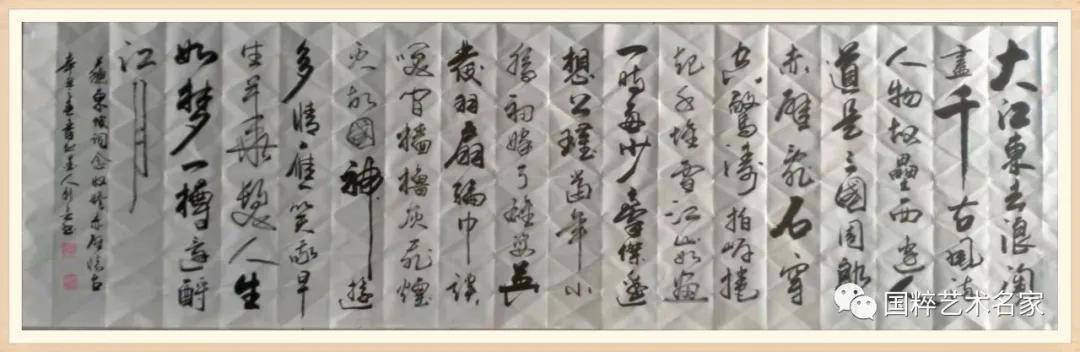 大江東去浪淘
盡千古風流
人物故壘西邊人
道是三國周郎
赤壁亂石穿
空驚濤拍岸捲
起千堆雪江山如畫
一時多少豪傑遙
想公瑾當年小
喬初嫁了雄姿英
發羽扇綸巾談
笑間檣櫓灰飛煙
滅故國神遊
多情應笑我早
生華髮人生
如夢一樽還酹
江月
蘇東坡詞念奴嬌赤壁懷古
国粹艺术名家